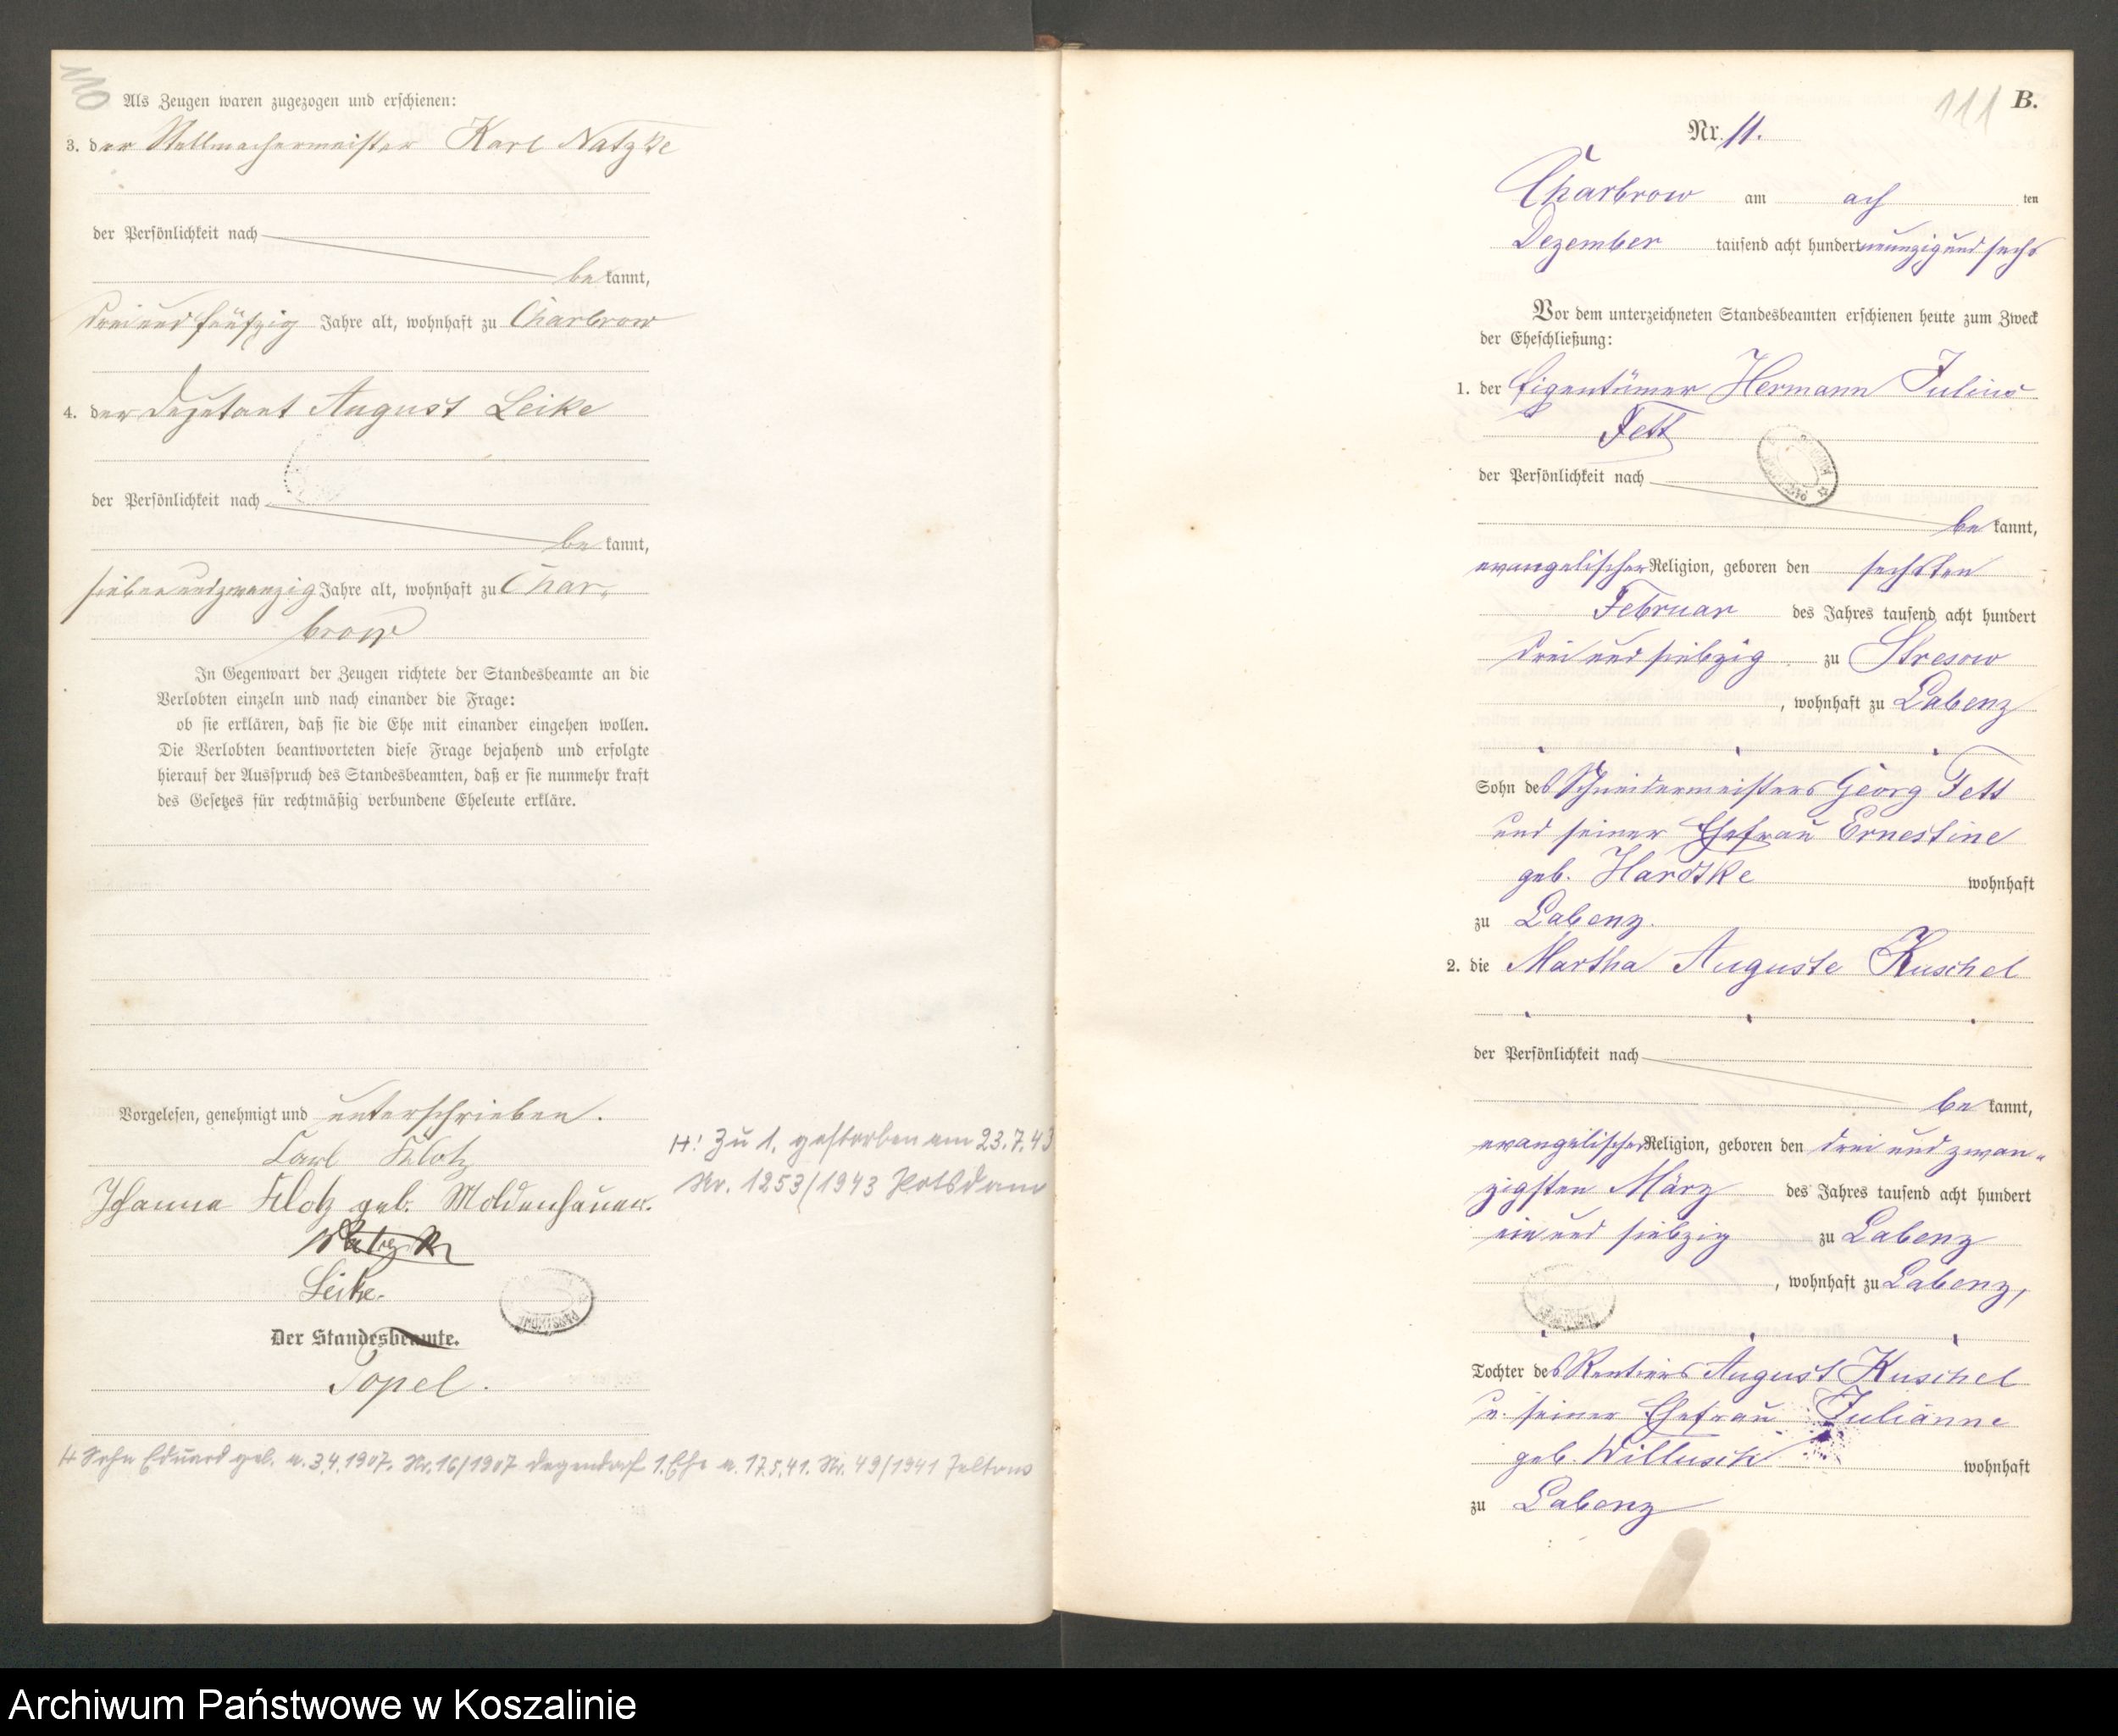 110
Als Zeugen waren zugezogen und erschienen:
3. der Stellmachermeister Karl Natzke
der Persönlichkeit nach
be kannt,
drei und fünfzig Jahre alt, wohnhaft zu Charbrow
4. der Deputant August Leike
der Persönlichkeit nach
be kannt,
sieben und zwanzig Jahre alt, wohnhaft zu Char-
brow
In Gegenwart der Zeugen richtete der Standesbeamte an die
Verlobten einzeln und nach einander die Frage:
ob sie erklären, daß sie die Ehe mit einander eingehen wollen.
Die Verlobten beantworteten diese Frage bejahend und erfolgte
hierauf der Ausspruch des Standesbeamten, daß er sie nunmehr kraft
des Gesetzes für rechtmäßig verbundene Eheleute erkläre.
Vorgelesen, genehmigt und unterschrieben.
Carl Klotz
Johanna Klotz geb. Moldenhauer.
Natzke
Leike.
Der Standesbeamte.
Topel.
H: Zu 1. gestorben am 23.7.43
Nr. 1253/1943 Potsdam
H Sohn Eduard geb. a. 3.4.1907. Nr. 16/1907 1. Ehe a. 17.5.41. Nr. 49/1941
111
B.
Nr. 11.
Charbrow am ach ten
Dezember tausend acht hundert neunzig und sechs
Vor dem unterzeichneten Standesbeamten erschienen heute zum Zweck
der Eheschließung:
1. der Eigentümer Hermann Julius
Fett
der Persönlichkeit nach
be kannt,
evangelischer Religion, geboren den sechsten
Februar des Jahres tausend acht hundert
drei und siebzig zu Stresow
, wohnhaft zu Labenz
Sohn des Schneidermeisters Georg Fett
und seiner Ehefrau Ernestine
geb. Hardtke wohnhaft
zu Labenz.
2. die Martha Auguste Kuschel
der Persönlichkeit nach
be kannt,
evangelischer Religion, geboren den drei und zwan-
zigsten März des Jahres tausend acht hundert
ein und siebzig zu Labenz
, wohnhaft zu Labenz,
Tochter des Rentiers August Kuschel
u. seiner Ehefrau Julianne
geb. Willusch wohnhaft
zu Labenz
Archiwum Państwowe w Koszalinie